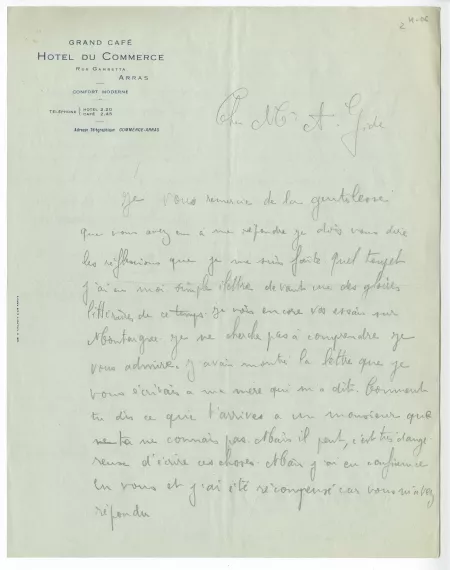 GRAND CAFÉ
HOTEL DU COMMERCE
RUE GAMBETTA
ARRAS
CONFORT MODERNE
TÉLÉPHONE HOTEL 2.20
CAFÉ 2.85
Adresse Télégraphique COMMERCE-ARRAS
Cher Mr A. Gide
Je vous remercie de la gentillesse
que vous avez eu à me répondre je dois vous dire
les réflexions que je me suis faite quel toupet
j'ai eu moi simple illettré devant une des gloires
littéraires de ce temps. Je vois encore vos essais sur
Montaigne je ne cherche pas à comprendre je
vous admire. J'avais montré la lettre que je
vous écrivais a ma mere qui m'a dit. Comment
tu dis ce que t'arrives a un monsieur que
tu ne connais pas. Mais il peut, c'est très dange
reuse d'écrire ces choses. Mais j'ai eu confiance
en vous et j'ai été récompensé car vous m'avez
répondu